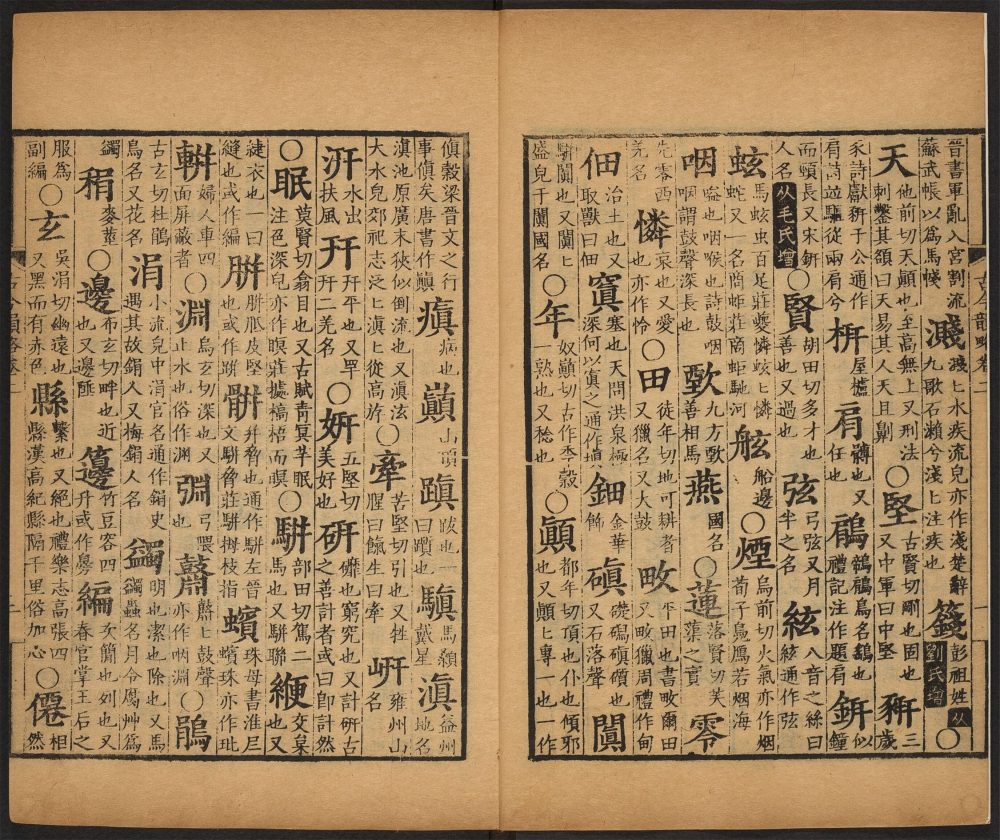 晉書軍亂入宮割流蘇武帳以爲馬帴濺濺〻水疾流皃亦作淺楚辭九歌石瀨兮淺〻注疾也籛彭祖姓从劉氏增○
天他前切天顚也至高無上又刑法刺鑿其額曰天易其人天且劓○堅古賢切剛也固也又中軍曰中堅豜三歲
豕詩獻豜于公通作肩詩並驅從兩肩兮枅屋櫨肩髆也又任也鵳鶙鵳鳥名鷂也禮記注作題肩鈃似鐘
而頸長又宋鈃人名从毛氏增○賢胡田切多才也善也又過也弦弓弦又月半之名絃八音之絲曰絃通作弦
蚿馬蚿虫百足莊夔憐蚿〻憐蛇又一名商蚷莊商蚷馳河舷船邊○煙烏前切火氣亦作烟荀子鳧鴈若烟海
咽嗌也咽喉也詩鼓咽咽謂鼓聲深長也歅九方歅善相馬燕國名○蓮落賢切芙蕖之實零
先零西羌名憐哀也又愛也亦作怜○田徒年切地可耕者又獵名又大鼓畋平田也書畋爾田又畋獵周禮作甸
佃治土也又取獸曰佃窴塞也天問洪泉極深何以窴之通作塡鈿金華飾磌磌也又石落聲闐
駢闐也又闐〻盛皃于闐國名○年奴顚切古作秊穀一熟也又稔也○顚都年切頂也仆也傾邪也又顚〻專一也一作
古今韻略卷二
傎穀梁晉文之行事傎矣唐書作瘨瘨病也巓山頂蹎跋也一曰躓也驒馬顙戴星滇益州地名
滇池原廣末狹似倒流也又滇汯大水皃郊祀志泛〻滇〻從高斿○牽苦堅切引也又牲腥曰餼生曰牽岍雍州山名
汧水出扶風幵幵平也又罕幵二羌名○妍五堅切美好也研䃺也窮究也又計研古之善計者或曰卽計然
○眠莫賢切翕目也又古賦靑冥芉眠注色深皃亦作瞑莊據槁梧而瞑○駢部田切駕二馬也又駢聯緶交枲也又
褋衣也一曰縫也或作編胼胼胝皮堅也或作跰骿幷脅也通作駢左晉文駢脅莊駢拇枝指蠙珠母書淮尼蠙珠亦作玭
軿婦人車四面屏蔽者○淵烏玄切深也又止水也俗作渊弲弓隈也鼘鼘〻鼓聲亦作咽淵○鵑
古玄切杜鵑鳥名又花名涓小流皃中涓官名通作鋗史遇其故鋗人又梅鋗人名蠲明也潔也除也又馬蠲蟲名月令腐艸爲
蠲稍麥莖○邊布玄切畔也近也又邊陲籩竹豆容四升或作匥編次簡也列也又春官掌王后之
服爲副編○玄㕦涓切幽遠也又黑而有赤色縣繫也又絕也禮樂志高張四縣漢高紀縣隔千里俗加心○僊相然